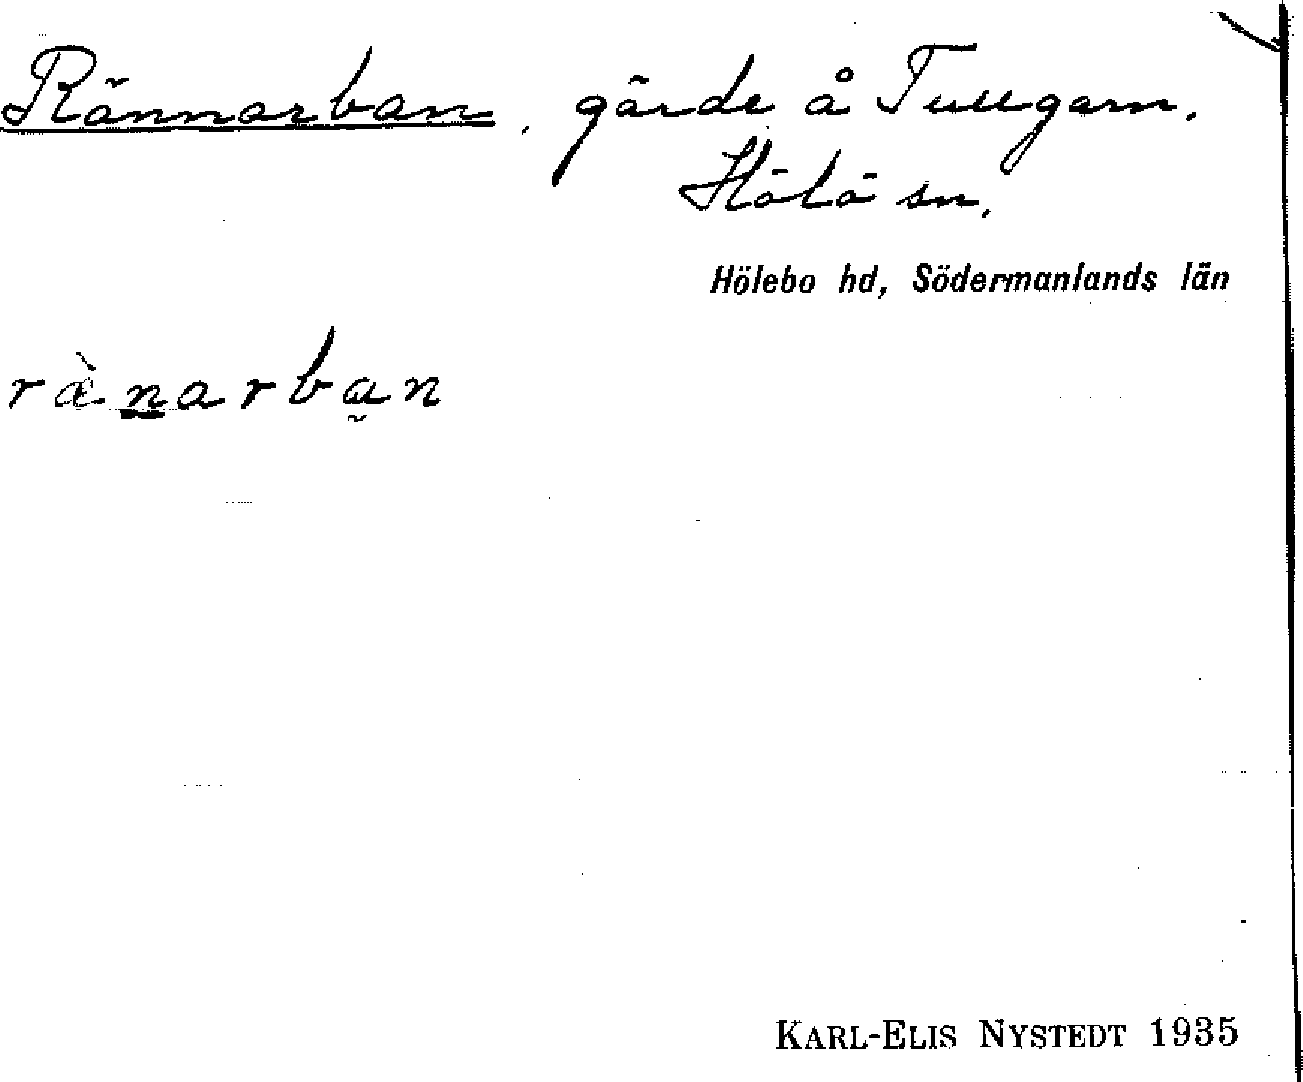 Rännarban, gärde å Tullgarn.
Hölö sn.
Hölebo hd, Södermanlands län
ræ̀narba̰n
KARL-ELIS NYSTEDT 1935